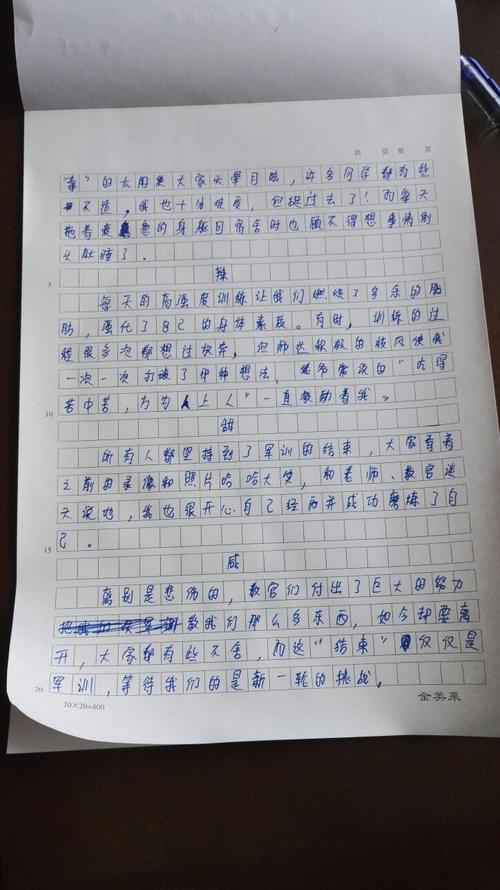 共 页 第 页
“毒”的太阳使大家头晕目眩，许多同学都为此
不适，我也十分难度，但挺过去了！而每天
拖着疲惫的身躯回宿舍时也顾不得想事情倒
头就睡了。
5
辣
每天的高强度训练让我们燃烧了多余的脂
肪，强化了自己的身体素质。有时，训练的过
程很多次都想过放弃，但师长积极的作风使我
一次一次打破了那种想法，常说的“吃得
10
苦中苦，方为人上人”一直激励着我。
甜
所有人都坚持到了军训的结束，大家看着
之前的录像和照片哈哈大笑，和老师、教官谈
天说地，我也很开心自己经历并成功磨练了自
15
己。
咸
离别是悲伤的，教官们付出了巨大的努力
教我们那么多东西，如今却要离
开，大家都有些不舍，而这“结束”仅仅是
20
军训，等待我们的是新一轮的挑战。
20×20=400
金美莱